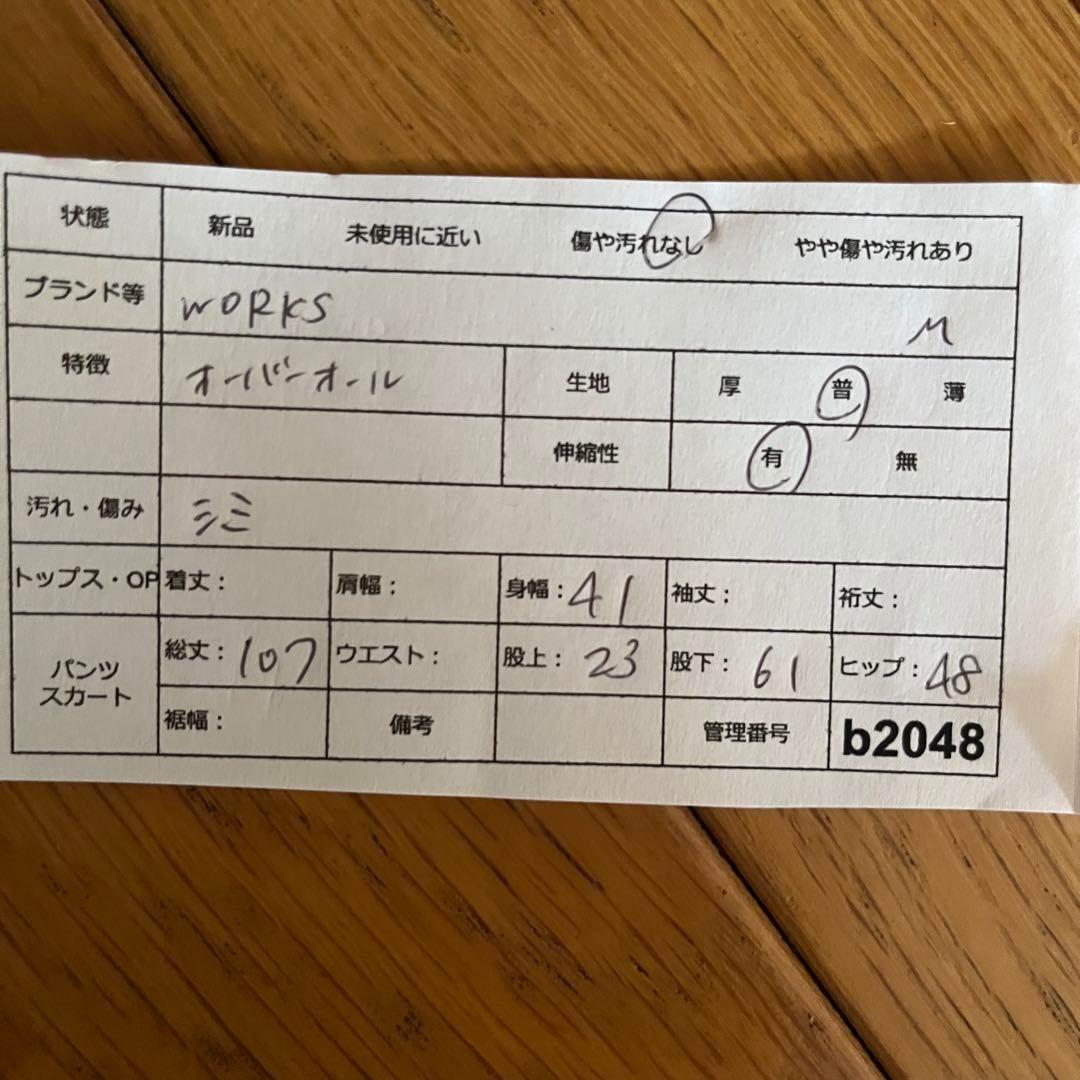 状態 新品 未使用に近い 傷や汚れなし やや傷や汚れあり
ブランド等 WORKS M
特徴 オーバーオール 生地 厚 普 薄
伸縮性 有 無
汚れ・傷み シミ
トップス・OP 着丈： 肩幅： 身幅：41 袖丈： 裄丈：
パンツ スカート 総丈：107 ウエスト： 股上：23 股下：61 ヒップ：48
裾幅： 備考 管理番号 b2048